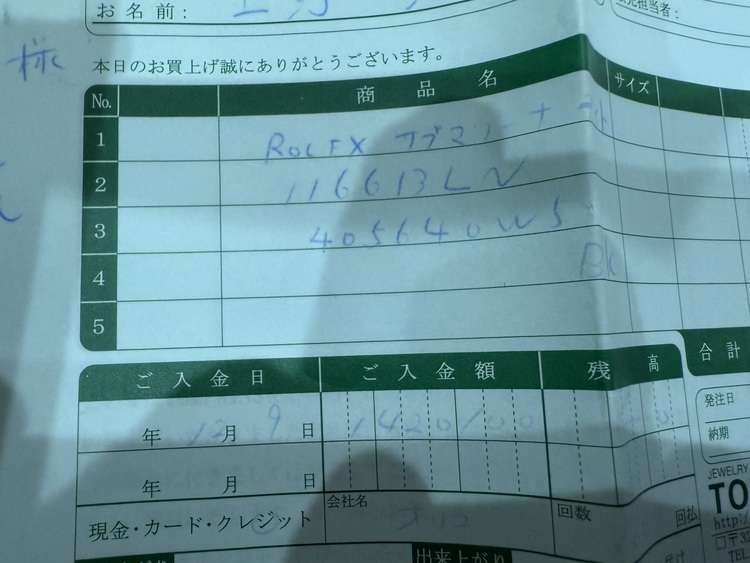 お名前：
様
本日のお買上げ誠にありがとうございます。
No. 商品名 サイズ
1 ROLEX サブマリーナ デイト
2 116613LN
3 405640W5
BK
4
5
ご入金日 ご入金額 残高 合計
年 12月 9日 1420100 0
年 月 日
現金・カード・クレジット 会社名 オリコ 回数 回払
発注日
納期
JEWELRY
TO
http:/
〒32
TEL
出来上がり